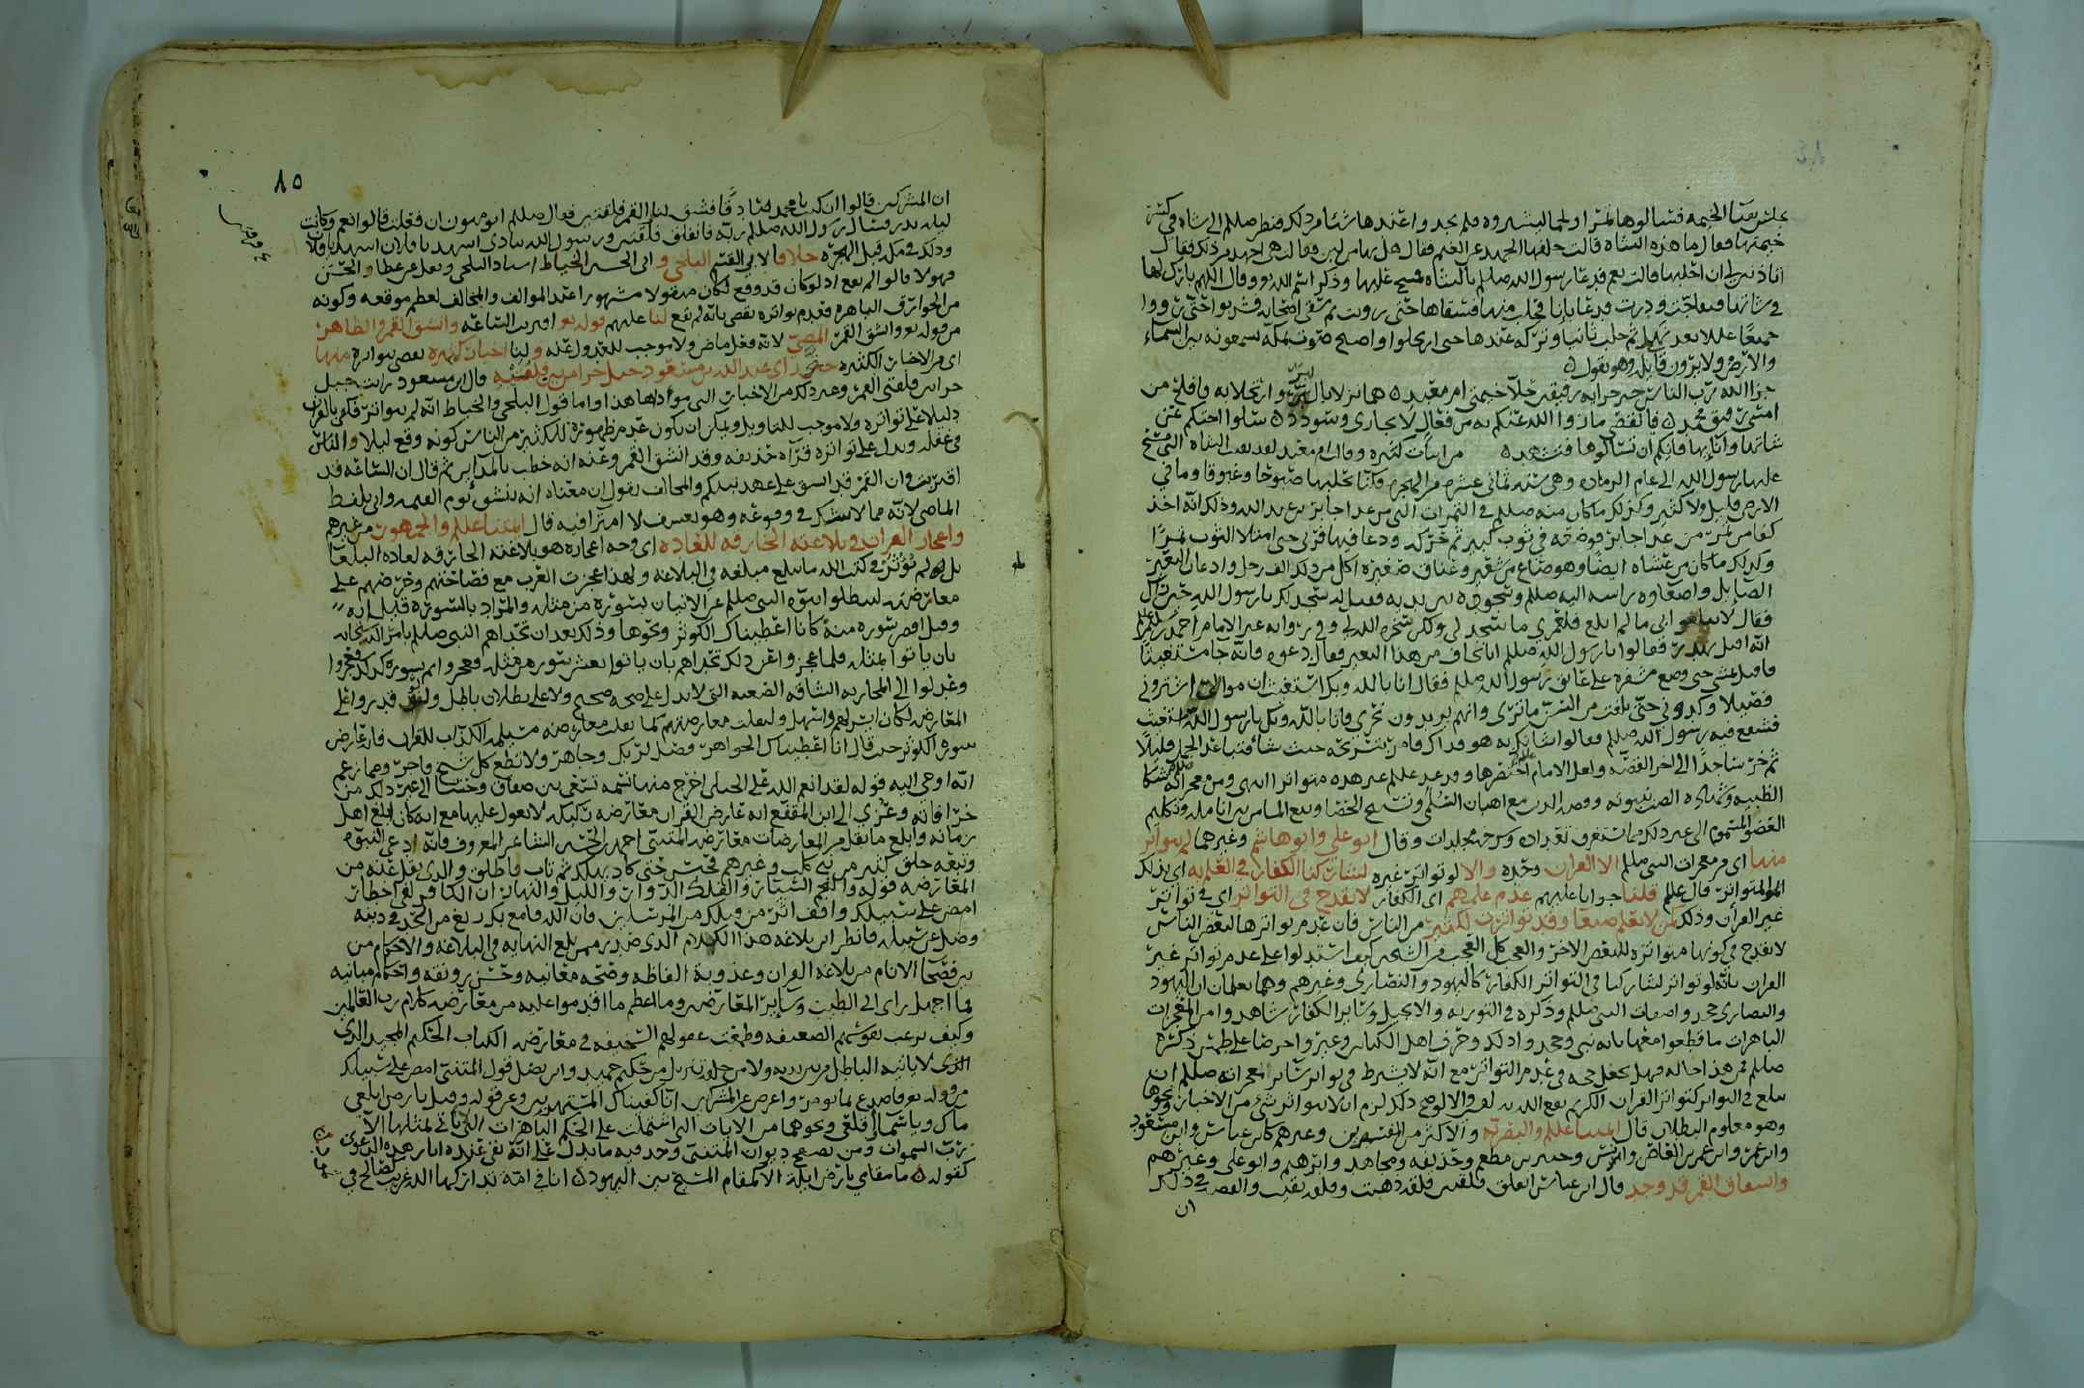 تجلس بفنا الخيمه فسالوها تمرا او لحما ليشتروه فلم يجدوا عندها شيئا من ذلك فنظر صللم الى شاه في كسر
خيمتها فقال ما هذه الشاه قالت خلفها الجهد عن الغنم فقال هل بها من لبن فقالت هي اجهد من ذلك فقال
اتاذنين لي ان احلبها قالت نعم فدعا رسول الله صللم بالشاه فمسح عليها وذكر اسم الله وقال اللهم بارك لها
في شاتها فتفاجت ودرت فدعا بانا فحلب منها فسقاها حتى رويت ثم سقى اصحابه فشربوا حتى رووا
جميعا عللا بعد نهل ثم حلب ثانيا وتركه عندها حتى ارتحلوا واصبح صوت بمكه يسمعونه بين السماء
والارض ولا يرون قايله وهو يقول
جزا الله رب الناس خير جزايه رفيقين حلا خيمتي ام معبد هما نزلا بالبر وارتحلا به فافلح من
امسى رفيق محمد فيا لقصي ما زوا الله عنكم به من فعال لا تجارى وسودد سلوا اختكم عن
شاتها وانائها فانكم ان تسالوها فتشهد من ابيات كثيره وقالت ام معبد لقد بقيت الشاه التي مسح
عليها رسول الله الى عام الرماده وهي سنه ثماني عشره من الهجره وكنا نحلبها صبوحا وغبوقا وما في
الارض قليل ولا كثير وكذلك ما كان منه صللم في التمرات التي من عند جابر بن عبد الله وذلك انه اخذ
كفا من تمر من عند جابر فوضعه في ثوب كبير ثم حركه ودعا فيها فربى حتى امتلا الثوب تمرا
وكذلك ما كان من عشاه ايضا وهو صاع من شعير وعناق صغيره اكل من ذلك الف رجل وادعان البعير
الصايل واصغاوه براسه اليه صللم وسجوده بين يديه فقيل له سجد لك يا رسول الله حين راك
فقال لا تبلغوا بي ما لم ابلغ فلعمري ما سجد لي ولكن سخره الله لي وفي روايه عن الامام احمد بن سليمن
انه اقبل يهدر فقالوا يا رسول الله صللم انا نخاف من هذا البعير فقال دعوه فانه جا مستغيثا
فاقبل يمشي حتى وضع مشفره على عاتق رسول الله صللم فقال انا بالله وبك استغيث ان موالي اشتروني
فصيلا وكدوني حتى بلغت من السن ما ترى وانهم يريدون نحري وانا بالله وبك يا رسول الله استغيث
فشفع فيه رسول الله صللم فقالوا شانك به هو فداك فامر بتسريحه حيث شا فتباعد الجمل قليلا
ثم خر ساجدا الى اخر القصه ولعل الامام اختصرها وقد عد عللم غير هذه متواترا انتهى ومن معجزاته شكا
الظبيه
العضو المسموم الى غير ذلك مما استغرق تعداده وشرحه مجلدات وقال ابو علي وابو هاشم وغيرهما لم يتواتر
منها اي من معجزات النبي صللم الا القران وحده والا لو تواتر غيره لشاركنا الكفار في العلم به اي بذلك
المتواتر قال عللم قلنا جوابا عليهم عدم علمهم اي الكفار لا يقدح في التواتر اي في تواتر
غير القران وذلك كمن لا يعلم صنعا وقد تواترت لكثير من الناس فان عدم تواترها لبعض الناس
لا يقدح في كونها متواتره للبعض الاخر والعجب كل العجب من الشيخين كيف استدلوا على عدم تواتر غير
القران بانه لو تواتر لشاركنا في التواتر الكفار كاليهود والنصارى وغيرهم وهما يعلمان ان اليهود
والنصارى جحدوا صفات النبي صللم وذكره في التوريه والانجيل وسائر الكفار شاهدوا من المعجزات
الباهرات ما قطعوا معها بانه نبي وجحدوا ذلك وحرف اهل الكتاب وغيروا حرصا على طمس ذكره
صللم فمن هذا حاله فهل يجعل حجه في عدم التواتر مع انه لا يشترط في تواتر سائر معجزاته صللم ان
يبلغ في التواتر كتواتر القران الكريم
وهو معلوم البطلان قال امتنا عللم والبصريه والاكثر من المفسرين وغيرهم كابن عباس وابن مسعود
وابن عمر وابن عمرو بن العاص وانس وجبير بن مطعم وحذيفه ومجاهد وابراهيم وابو علي وغيرهم
وانشقاق القمر قد وجد قال ابن عباس انفلق فلقتين فلقه ذهبت وفلقه بقيت والقصه في ذلك
ان
٨٥
ان المشركين قالوا ان كنت يا محمد صادقا فشق لنا القمر فلقتين فقال صللم اتومنون ان فعلت قالوا نعم وكانت
ليله بدر فسال رسول الله صللم ربه فانفلق فلقتين ورسول الله ينادي اشهد يا فلان اشهد يا فلان
وذلك في مكه قبل الهجره خلافا لابي القسم البلخي و ابي الحسين الخياط استاد البلخي ونقل عن عطا والحسن
فهولا قالوا لم يقع اذ لو كان قد وقع لكان منقولا مشهورا عند الموالف والمخالف لعظم موقعه وكونه
من الخوارق الباهره فعدم تواتره يقضي بانه لم يقع لنا عليهم قوله تع اقتربت الساعه وانشق القمر والظاهر
من قوله تع وانشق القمر المضي لانه فعل ماض ولا موجب للعدول عنه ولنا اخبار كثيره تقضي بتواتره منها
اي من الاخبار الكثيره حتى راى عبد الله بن مسعود جبل حرا من بين فلقتيه قال ابن مسعود رايت جبل
حرا بين فلقتي القمر وغير ذلك من الاخبار التي مؤداها هذا واما قول البلخي والخياط انه لم يتواتر فكفى بالقران
دليلا على تواتره ولا موجب للتاويل ويمكن ان يكون عدم ظهوره للكثير من الناس كونه وقع ليلا والناس
في غفله ويدل على تواتره قرآه حذيفه وقد انشق القمر وعنه انه خطب بالمداين ثم قال ان الساعه قد
اقتربت وان القمر قد انشق على عهد نبيكم والمخالف يقول ان معناه انه ينشق يوم القيمه واتى بلفظ
الماضي لانه مما لا يشك في وقوعه وهو تعسف لا امترا فيه قال امتنا عللم والجمهور من غيرهم
واعجاز القران في بلاغته الخارقه للعاده اي وجه اعجازه هو بلاغته الخارقه لعاده البلغا
بل لم يؤثر في كتب الله ما يبلغ مبلغه في البلاغه ولهذا عجزت العرب مع فصاحتهم وحرصهم على
معارضته ليبطلوا نبوه النبي صللم عن الاتيان بسوره من مثله والمراد بالسوره قيل ايه
وقيل اقصر سوره منه كانا اعطيناك الكوثر ونحوها وذلك بعد ان تحداهم النبي صللم بامر الله سبحانه
بان ياتوا بمثله فلما عجزوا عن ذلك تحداهم بان ياتوا بعشر سور من مثله فعجزوا ثم بسوره كذلك فعجزوا
وعدلوا الى المحاربه الشاقه الصعبه التي لا تدل على صحه صحيح ولا على بطلان باطل ولو قدروا على
المعارضه لكان ايسر لهم واسهل ولنقلت معارضتهم كما نقلت معارضه مسيلمه الكذاب للقران فانه عارض
سوره الكوثر حين قال انا اعطيناك الجواهر فصل لربك وجاهر ولا تطع كل شيخ فاجر ومما زعم
انه اوحي اليه قوله لقد انعم الله على الحبلى اخرج منها نسمه تسعى بين صفاق وحشا الى غير ذلك من
خرافاته وعزي الى ابن المقفع انه عارض القران معارضه ركيكه لا يعول عليها مع انه كان ابلغ اهل
زمانه وابلغ ما نقل من المعارضات معارضه المتنبي احمد بن الحسين الشاعر المعروف فانه ادعى النبوه
وتبعه خلق كثير من بني كلب وغيرهم فحبس حتى كاد يهلك ثم تاب فاطلق والذي نقل عنه من
المعارضه قوله والنجم السيار والفلك الدوار والليل والنهار ان الكافر لفي اخطار
امض على سبيلك واقف اثر من قبلك من المرسلين فان الله قامع بك زيغ من الحد في دينه
وضل عن سبيله فانظر اين بلاغه هذا الكلام الذي صدر ممن بلغ النهايه في البلاغه والاحكام من
بين فصحا الانام من بلاغه القران وعذوبه الفاظه وصحه معانيه وحسن رونقه واحكام مبانيه
فما اجهل راي ابي الطيب وسائر المعارضين وما اعظم ما اقدموا عليه من معارضه كلام رب العالمين
وكيف رغبت نفوسهم الضعيفه وطمعت عقولهم السخيفه في معارضه الكتاب الحكيم المجيد الذي
الذي لا ياتيه الباطل من بين يديه ولا من خلفه تنزيل من حكيم حميد واين يصل قول المتنبي امض على سبيلك
من قوله تع فاصدع بما تومر واعرض عن المشركين انا كفيناك المستهزين وعن قوله وقيل يا ارض ابلعي
ماك ويا سما اقلعي ونحوهما من الايات التي اشتملت على الحكم الباهرات التي لا ياتي بمثلها الا
رب السموات ومن تصفح ديوان المتنبي وجد فيه ما يدل على انه بقي عنده اثار هذه الدعوى
كقوله ما مقامي بارض نخله الا كمقام المسيح بين اليهود انا في امه تداركها الله غريب كصالح في